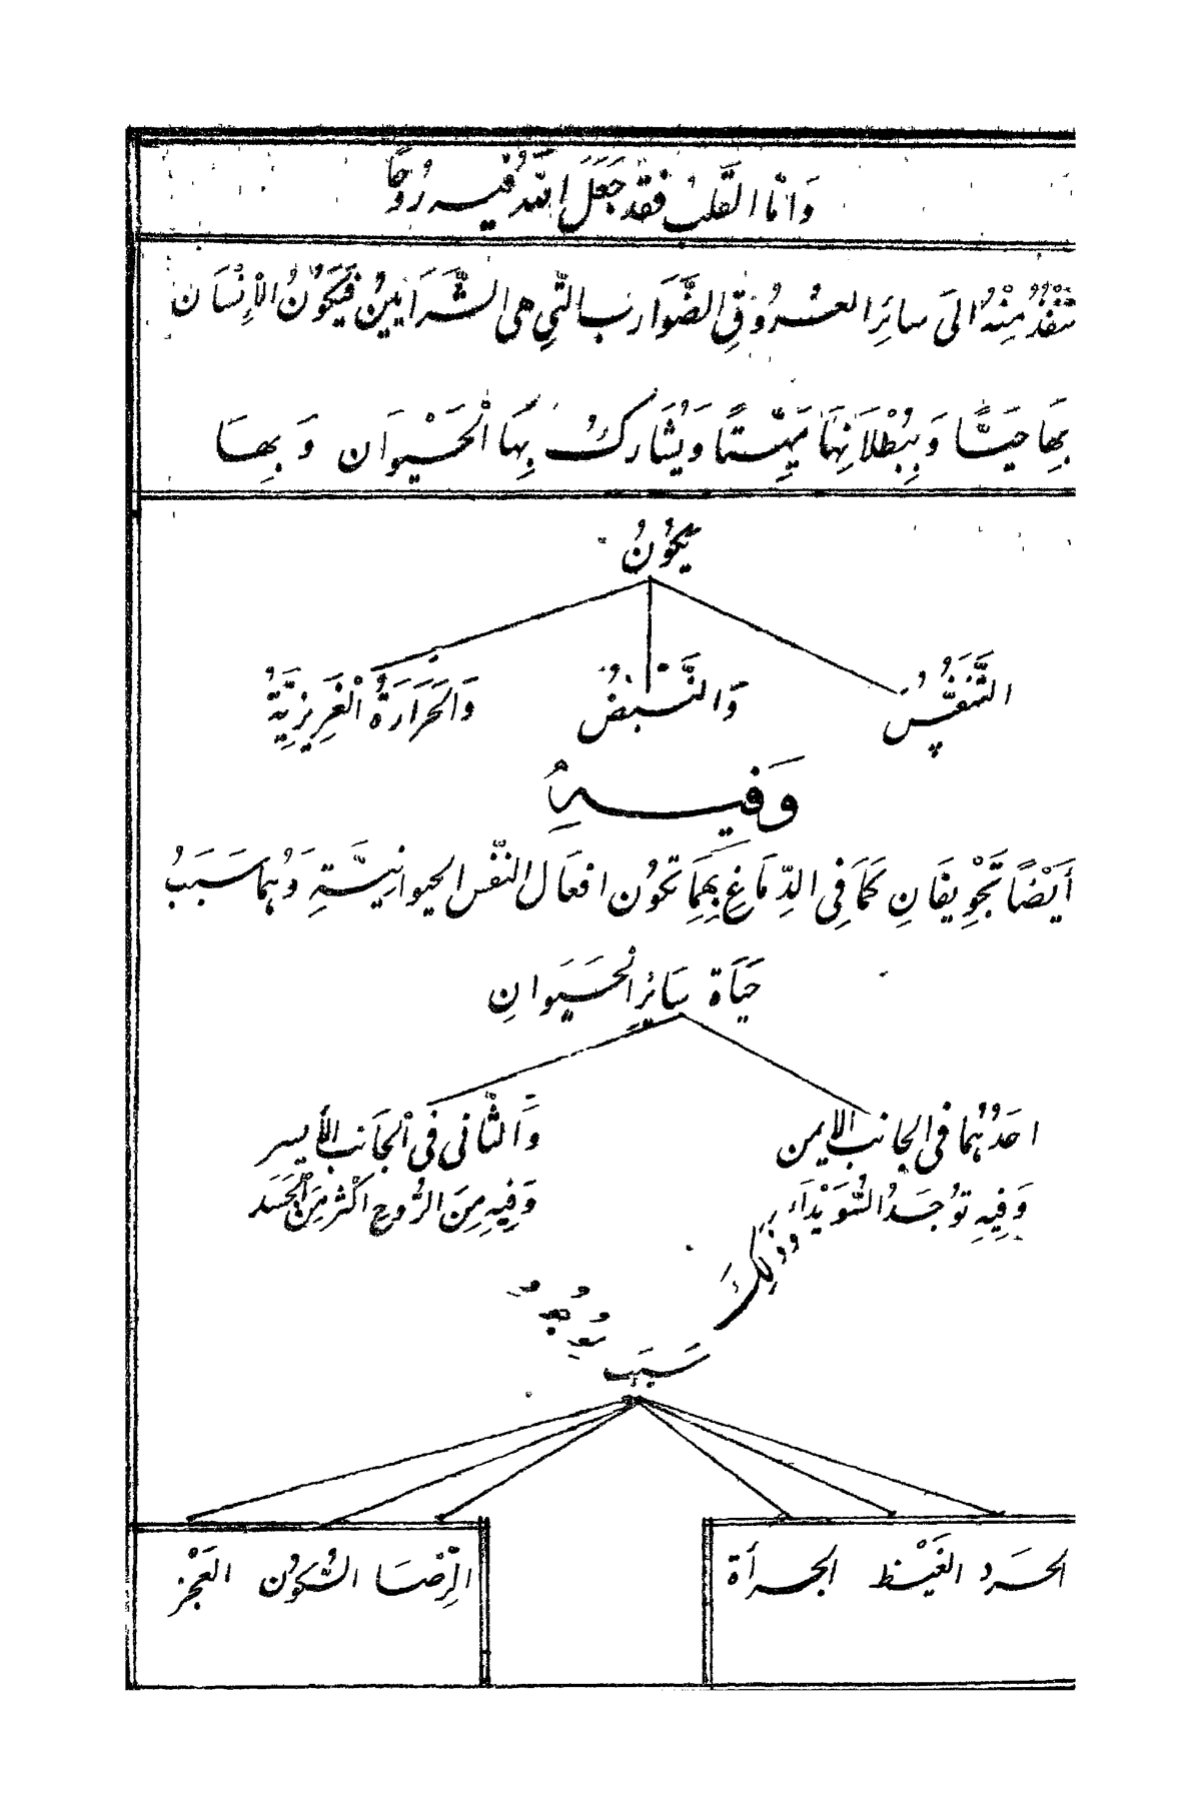 وَأَمَّا القَلبُ فَقَدْ جَعَلَ اللهُ فِيهِ رُوحًا
تَنْفُذُ مِنْهُ الىَ سائِرِ العُرُوقِ الضَّوَارِبِ التَّي هي الشَّرَايينُ فَيَكُونُ الإِنْسَان
بِهَا حَيًّا وَبِبُطْلَانِهَا مَيِّتًا وَيُشَارِكُ بِهَا الْحَيْوَان وَبِهَا
يَكُونُ
التَّنَفُّسُ
وَالنَّبْضُ
وَالحَرَارَةُ الْغَرِيزِيَّةُ
وَفِيهِ
أَيْضًا تَجْوِيفَانِ كَمَا فِي الدِّمَاغِ بِهِمَا تَكُون افعَال النَّفْس الحيوانِيَّةِ وَهُمَا سَبَبُ
حَيَاة سَائِرِ الْحَيَوانِ
احَدُهُما في الجانب الايمن
وَفِيهِ تُوجَدُ السُّوَيْدَاء
وَالثَّاني في الْجَانب الأيسر
وَفِيهِ مِنَ الرُّوحِ اكْثَر مِنَ الْجَسَد
وَذٰلِكَ
سَبَب
الحرَد الغَيْظ الجرأة
الرِّضَا السُّكُون العَجْز